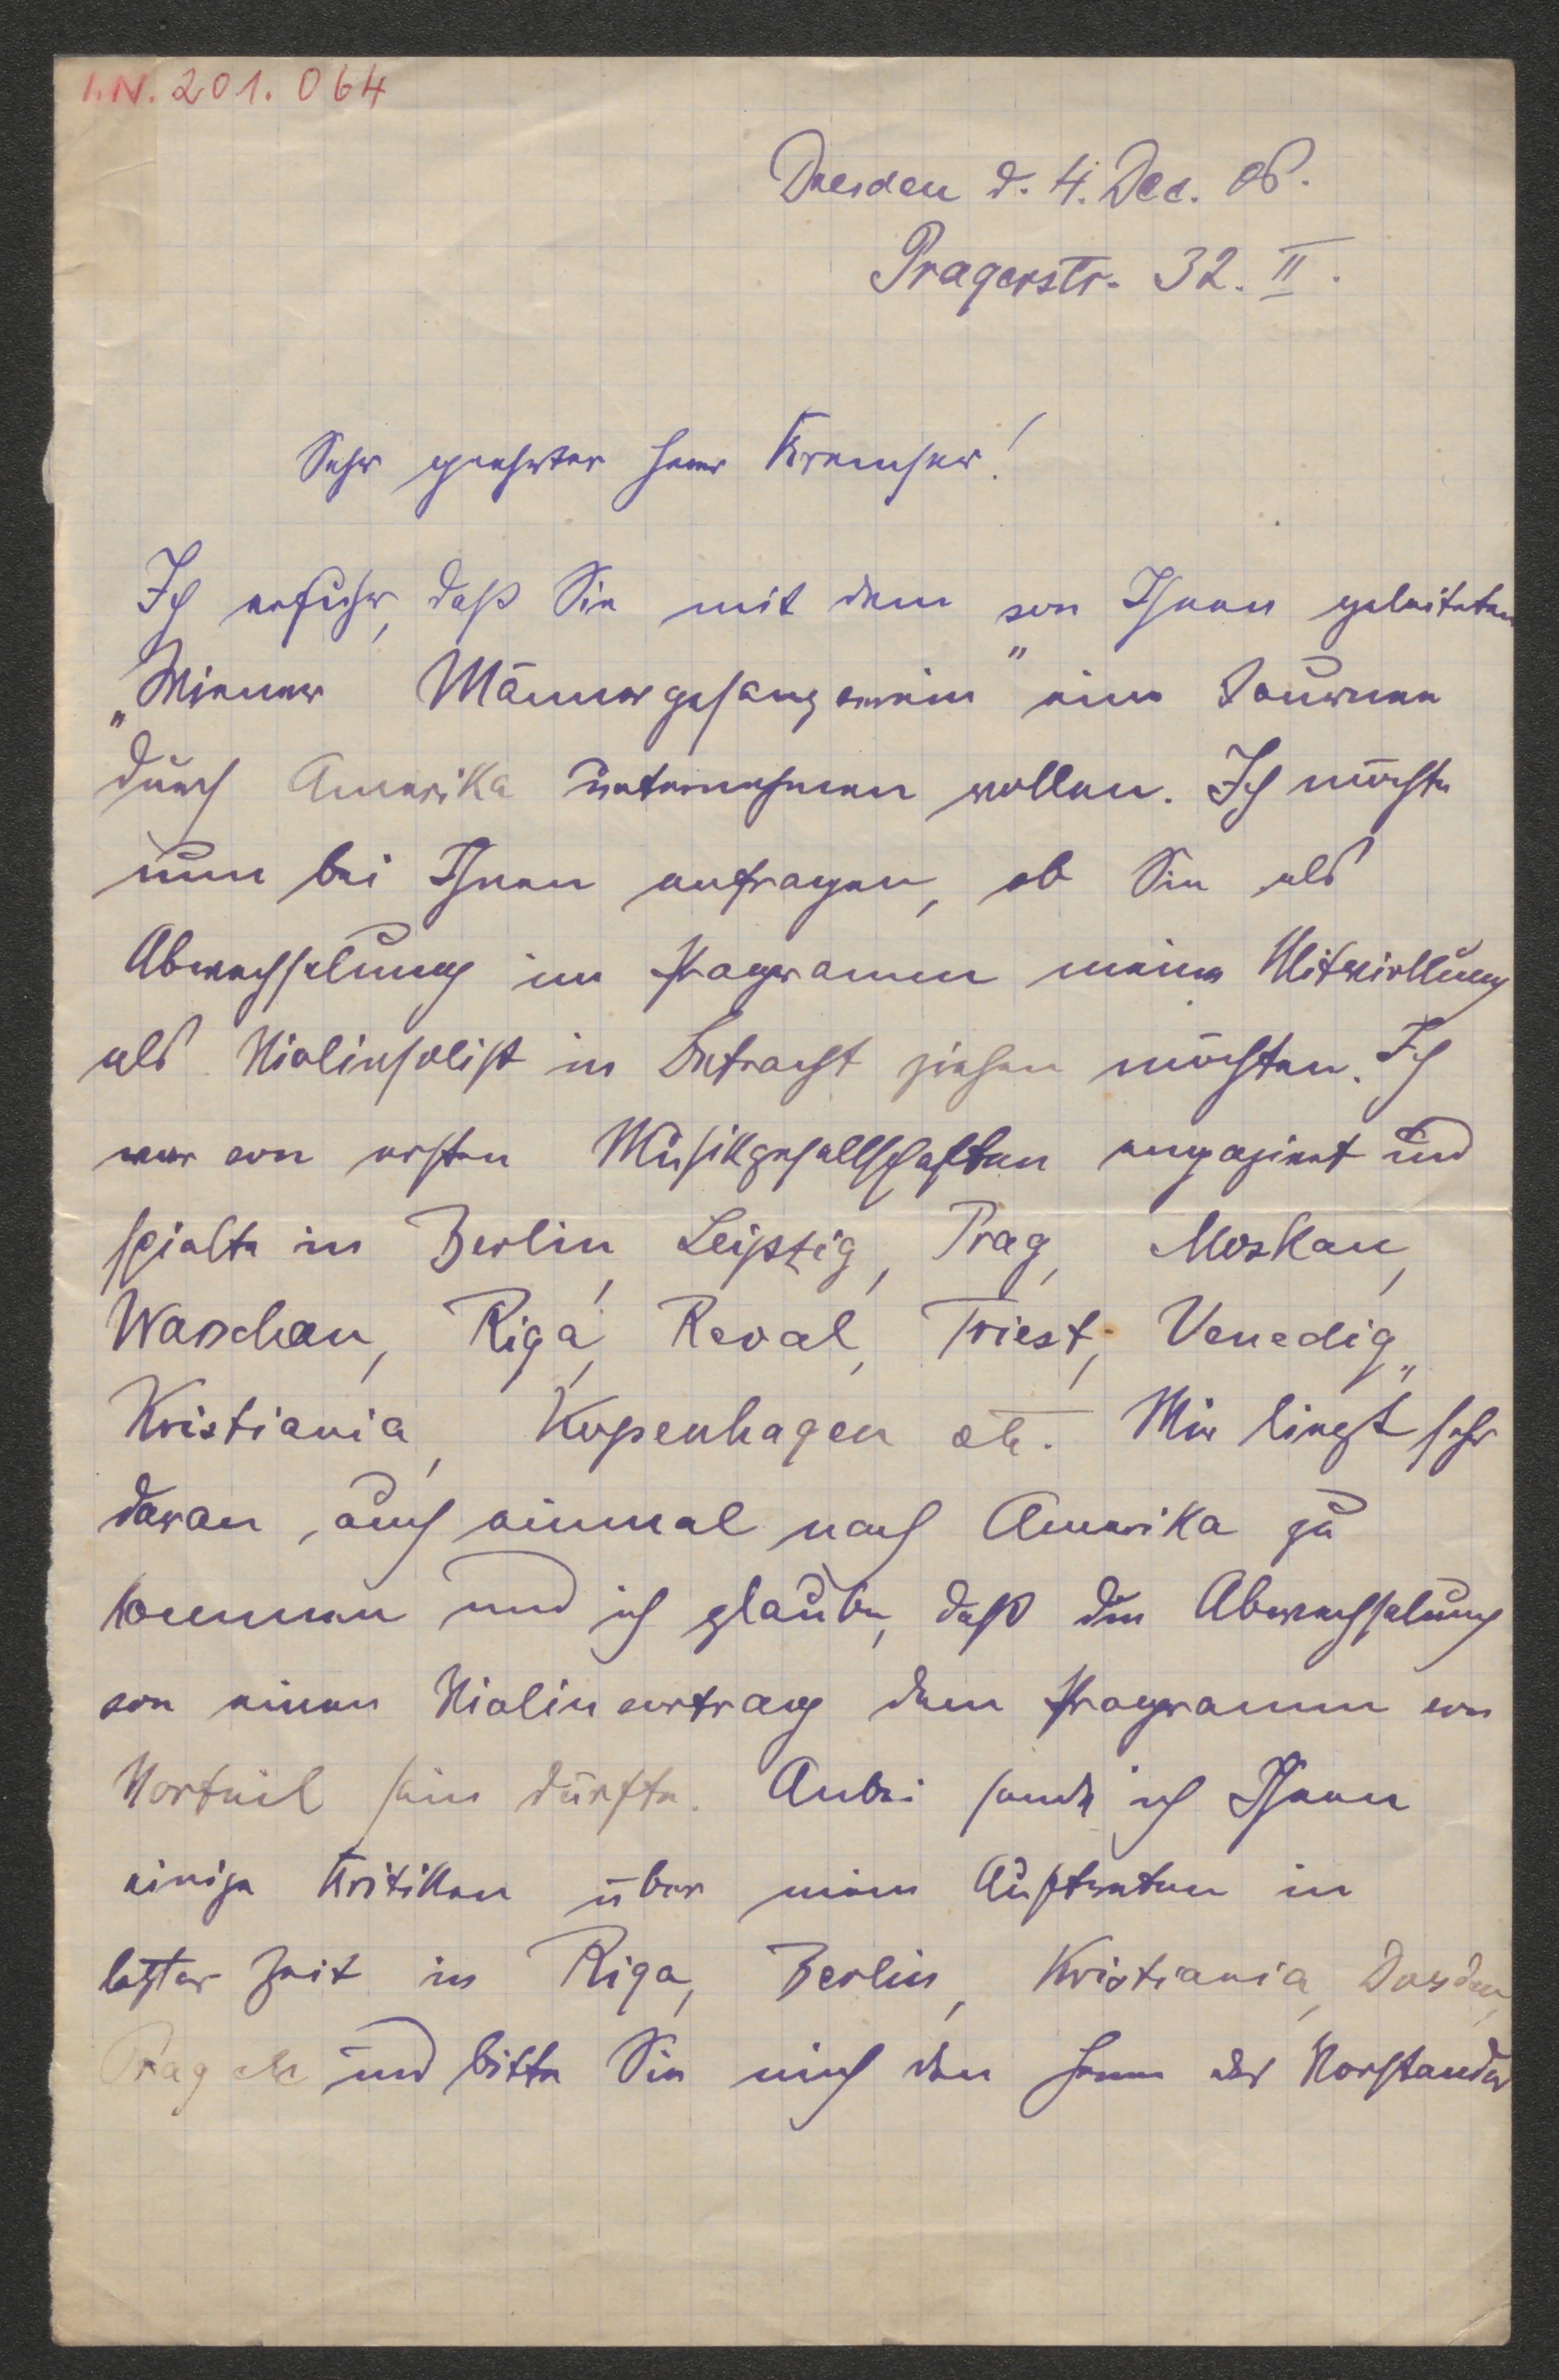 I.N. 201.064
Dresden d. 4. Dec. 06.
Pragerstr. 32. II.
Sehr geehrter Herr Kremser!
Ich erfuhr, daß Sie mit dem von Ihnen geleiteten
„Wiener Männergesangverein" eine Tournee
durch Amerika unternehmen wollen. Ich möchte
nun bei Ihnen anfragen, ob Sie als
Abwechselung im Programm meine Mitwirkung
als Violinsolist in Betracht ziehen möchten. Ich
war von ersten Musikgesellschaften engagiert und
spielte in Berlin, Leipzig, Prag, Moskau,
Warschau, Riga, Reval, Triest, Venedig,
Kristiania, Kopenhagen etc. Mir liegt sehr
daran, auch einmal nach Amerika zu
kommen und ich glaube, daß die Abwechselung
von einen Violinvortrag dem Programm von
Vorteil sein dürfte. Anbei sende ich Ihnen
einige Kritiken über mein Auftreten in
letzter Zeit in Riga, Berlin, Kristiania, Dresden,
Prag etc und bitte Sie mich den Herrn des Vorstandes